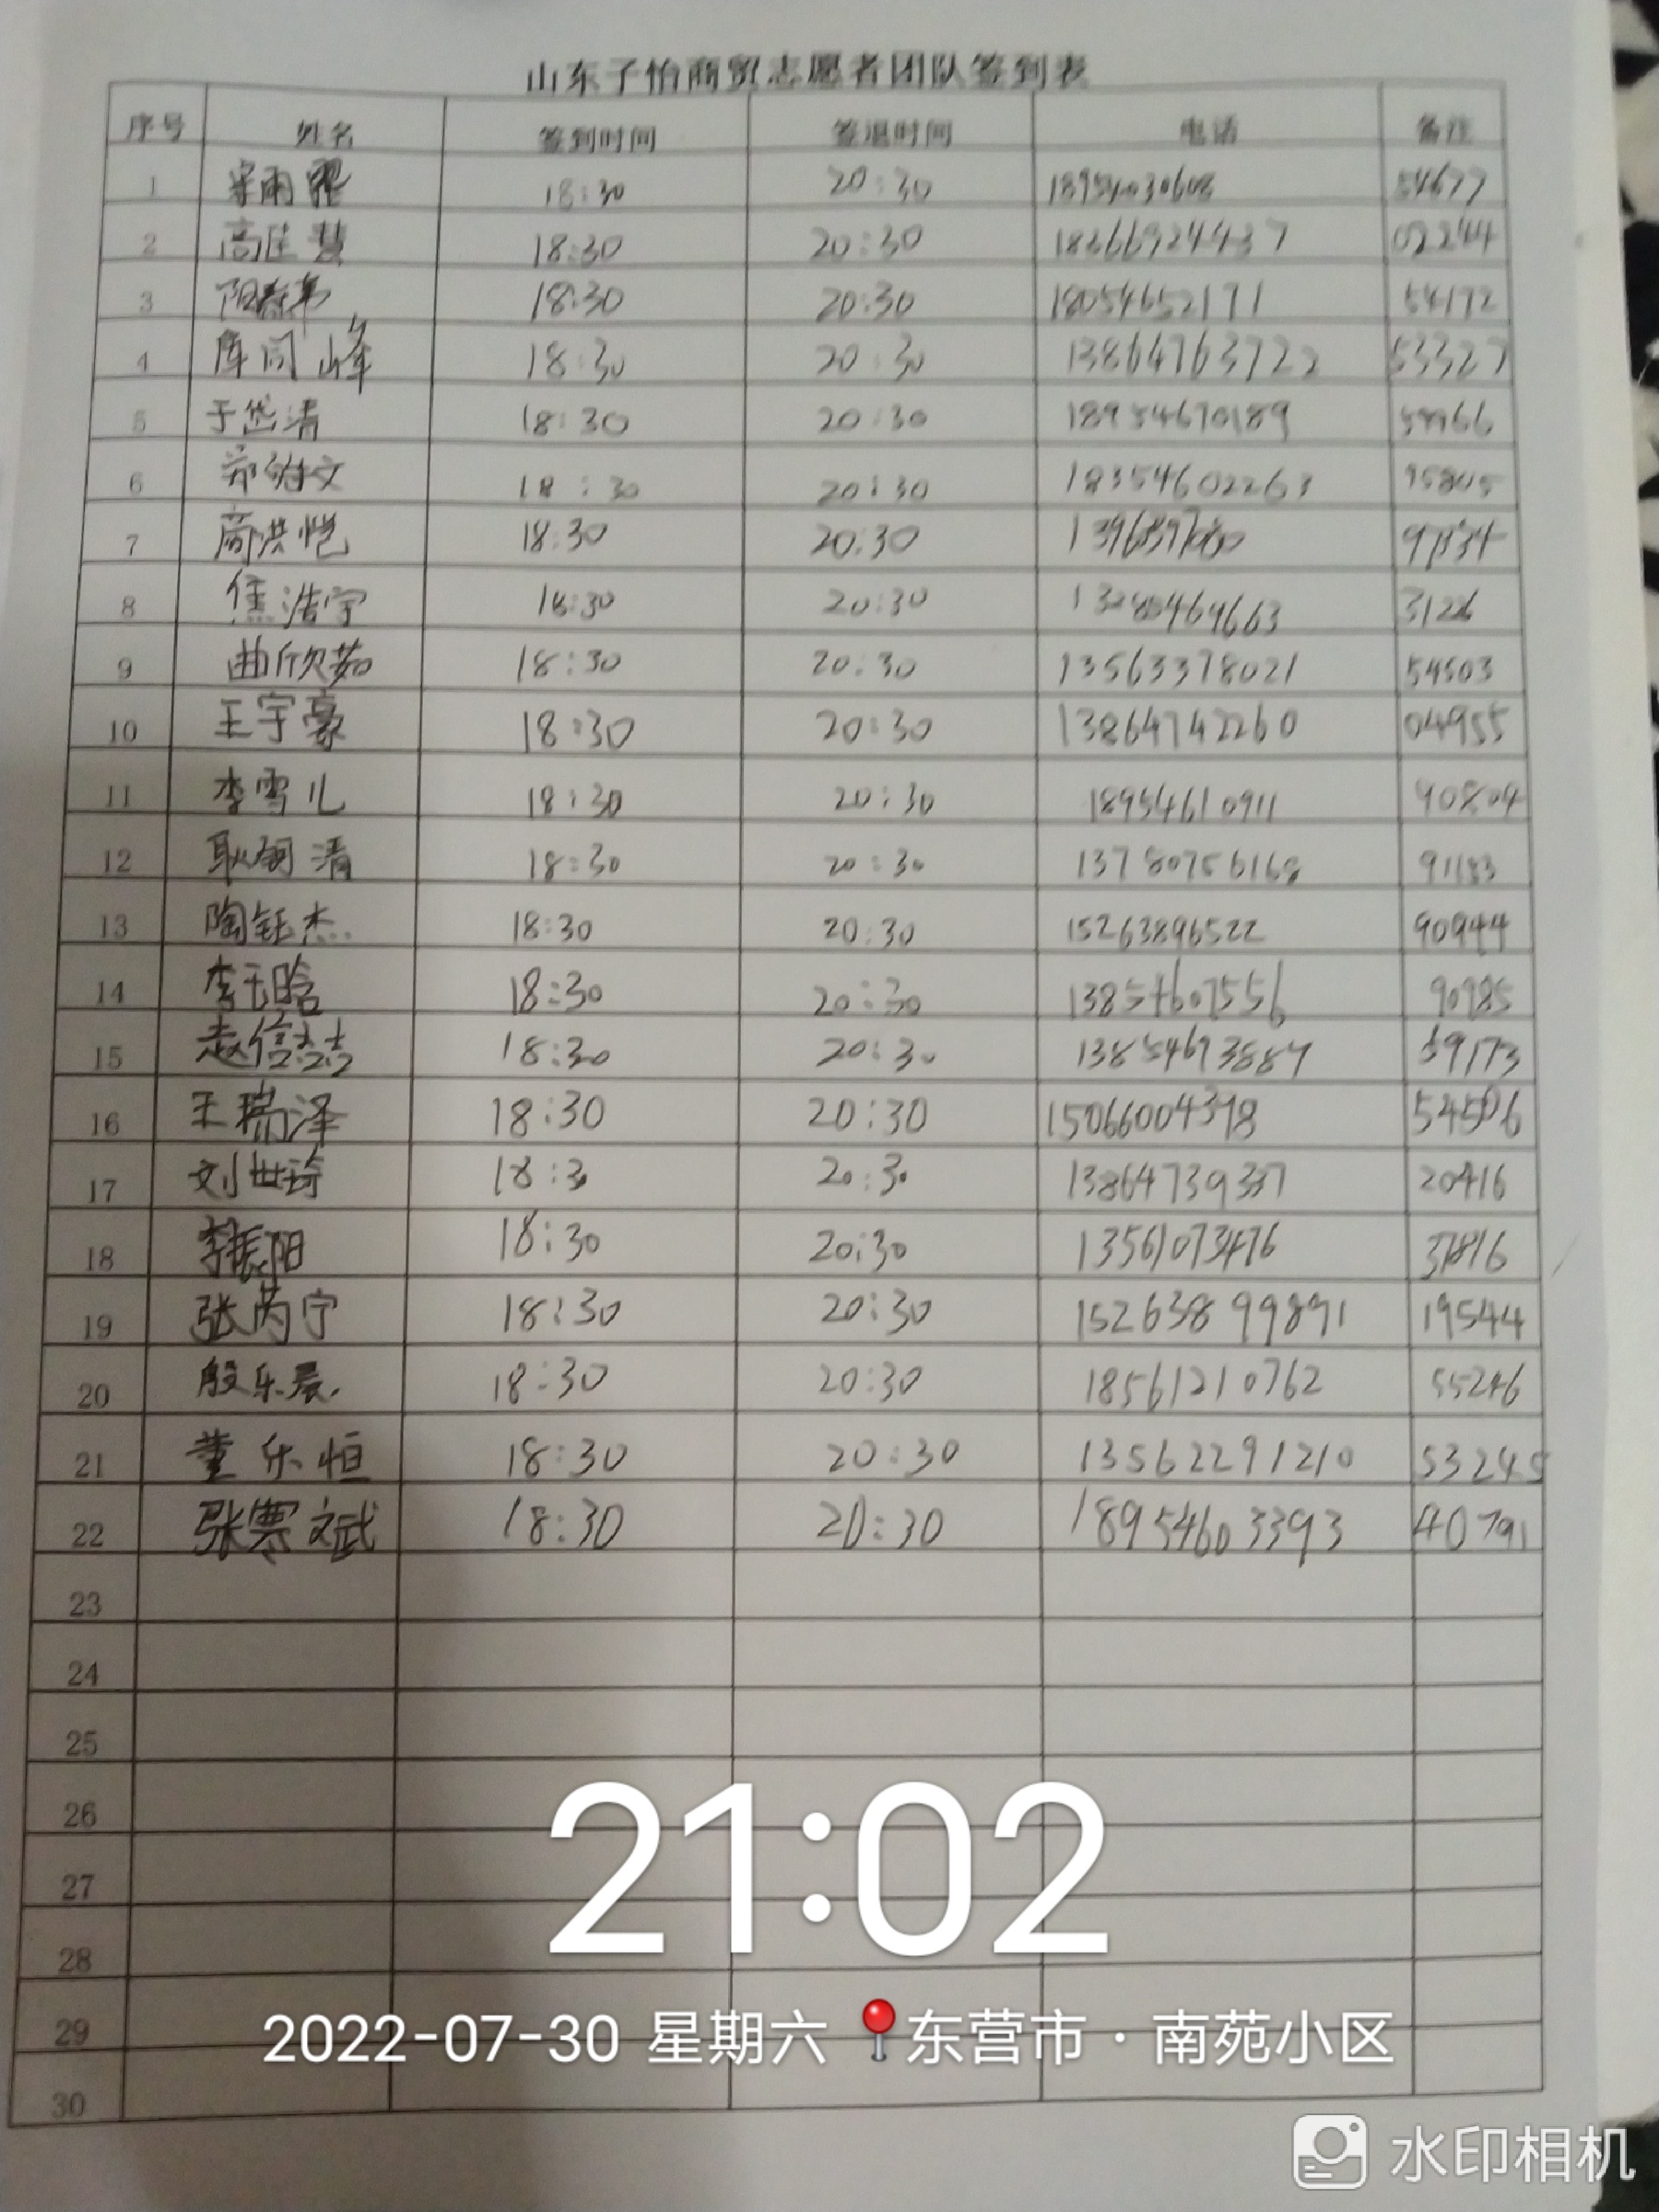 山东子怡商贸志愿者团队签到表
序号 姓名 签到时间 签退时间 电话 备注
1 18:30 20:30 54677
2 18:30 20:30 18366924437 02244
3 18:30 20:30 18054652171 54172
4 18:30 20:30 13864763722 53327
5 于岱清 18:30 20:30 18954670189
6 18:30 20:30 18354602263
7 商洪恺 18:30 20:30
8 焦浩宇 18:30 20:30
9 曲欣茹 18:30 20:30 13563378021 54503
10 王宇豪 18:30 20:30 13864742260 04955
11 李雪儿 18:30 20:30 18954610911 90804
12 18:30 20:30 13780756168 91183
13 陶钰杰 18:30 20:30 15263896522 90944
14 18:30 20:30 13854607556 90985
15 赵信喆 18:30 20:30 13854673887 59173
16 王瑞泽 18:30 20:30 15066004378 54506
17 刘世琦 18:30 20:30 13864739337 20416
18 李振阳 18:30 20:30 13561073476 37816
19 张芮宁 18:30 20:30 15263899891 19544
20 殷乐晨 18:30 20:30 18561210762 55246
21 董乐恒 18:30 20:30 13562291210 53245
22 张骞文武 18:30 20:30 18954603393 40791
23
24
25
26
27
28
29
30
21:02
2022-07-30 星期六 东营市·南苑小区
水印相机